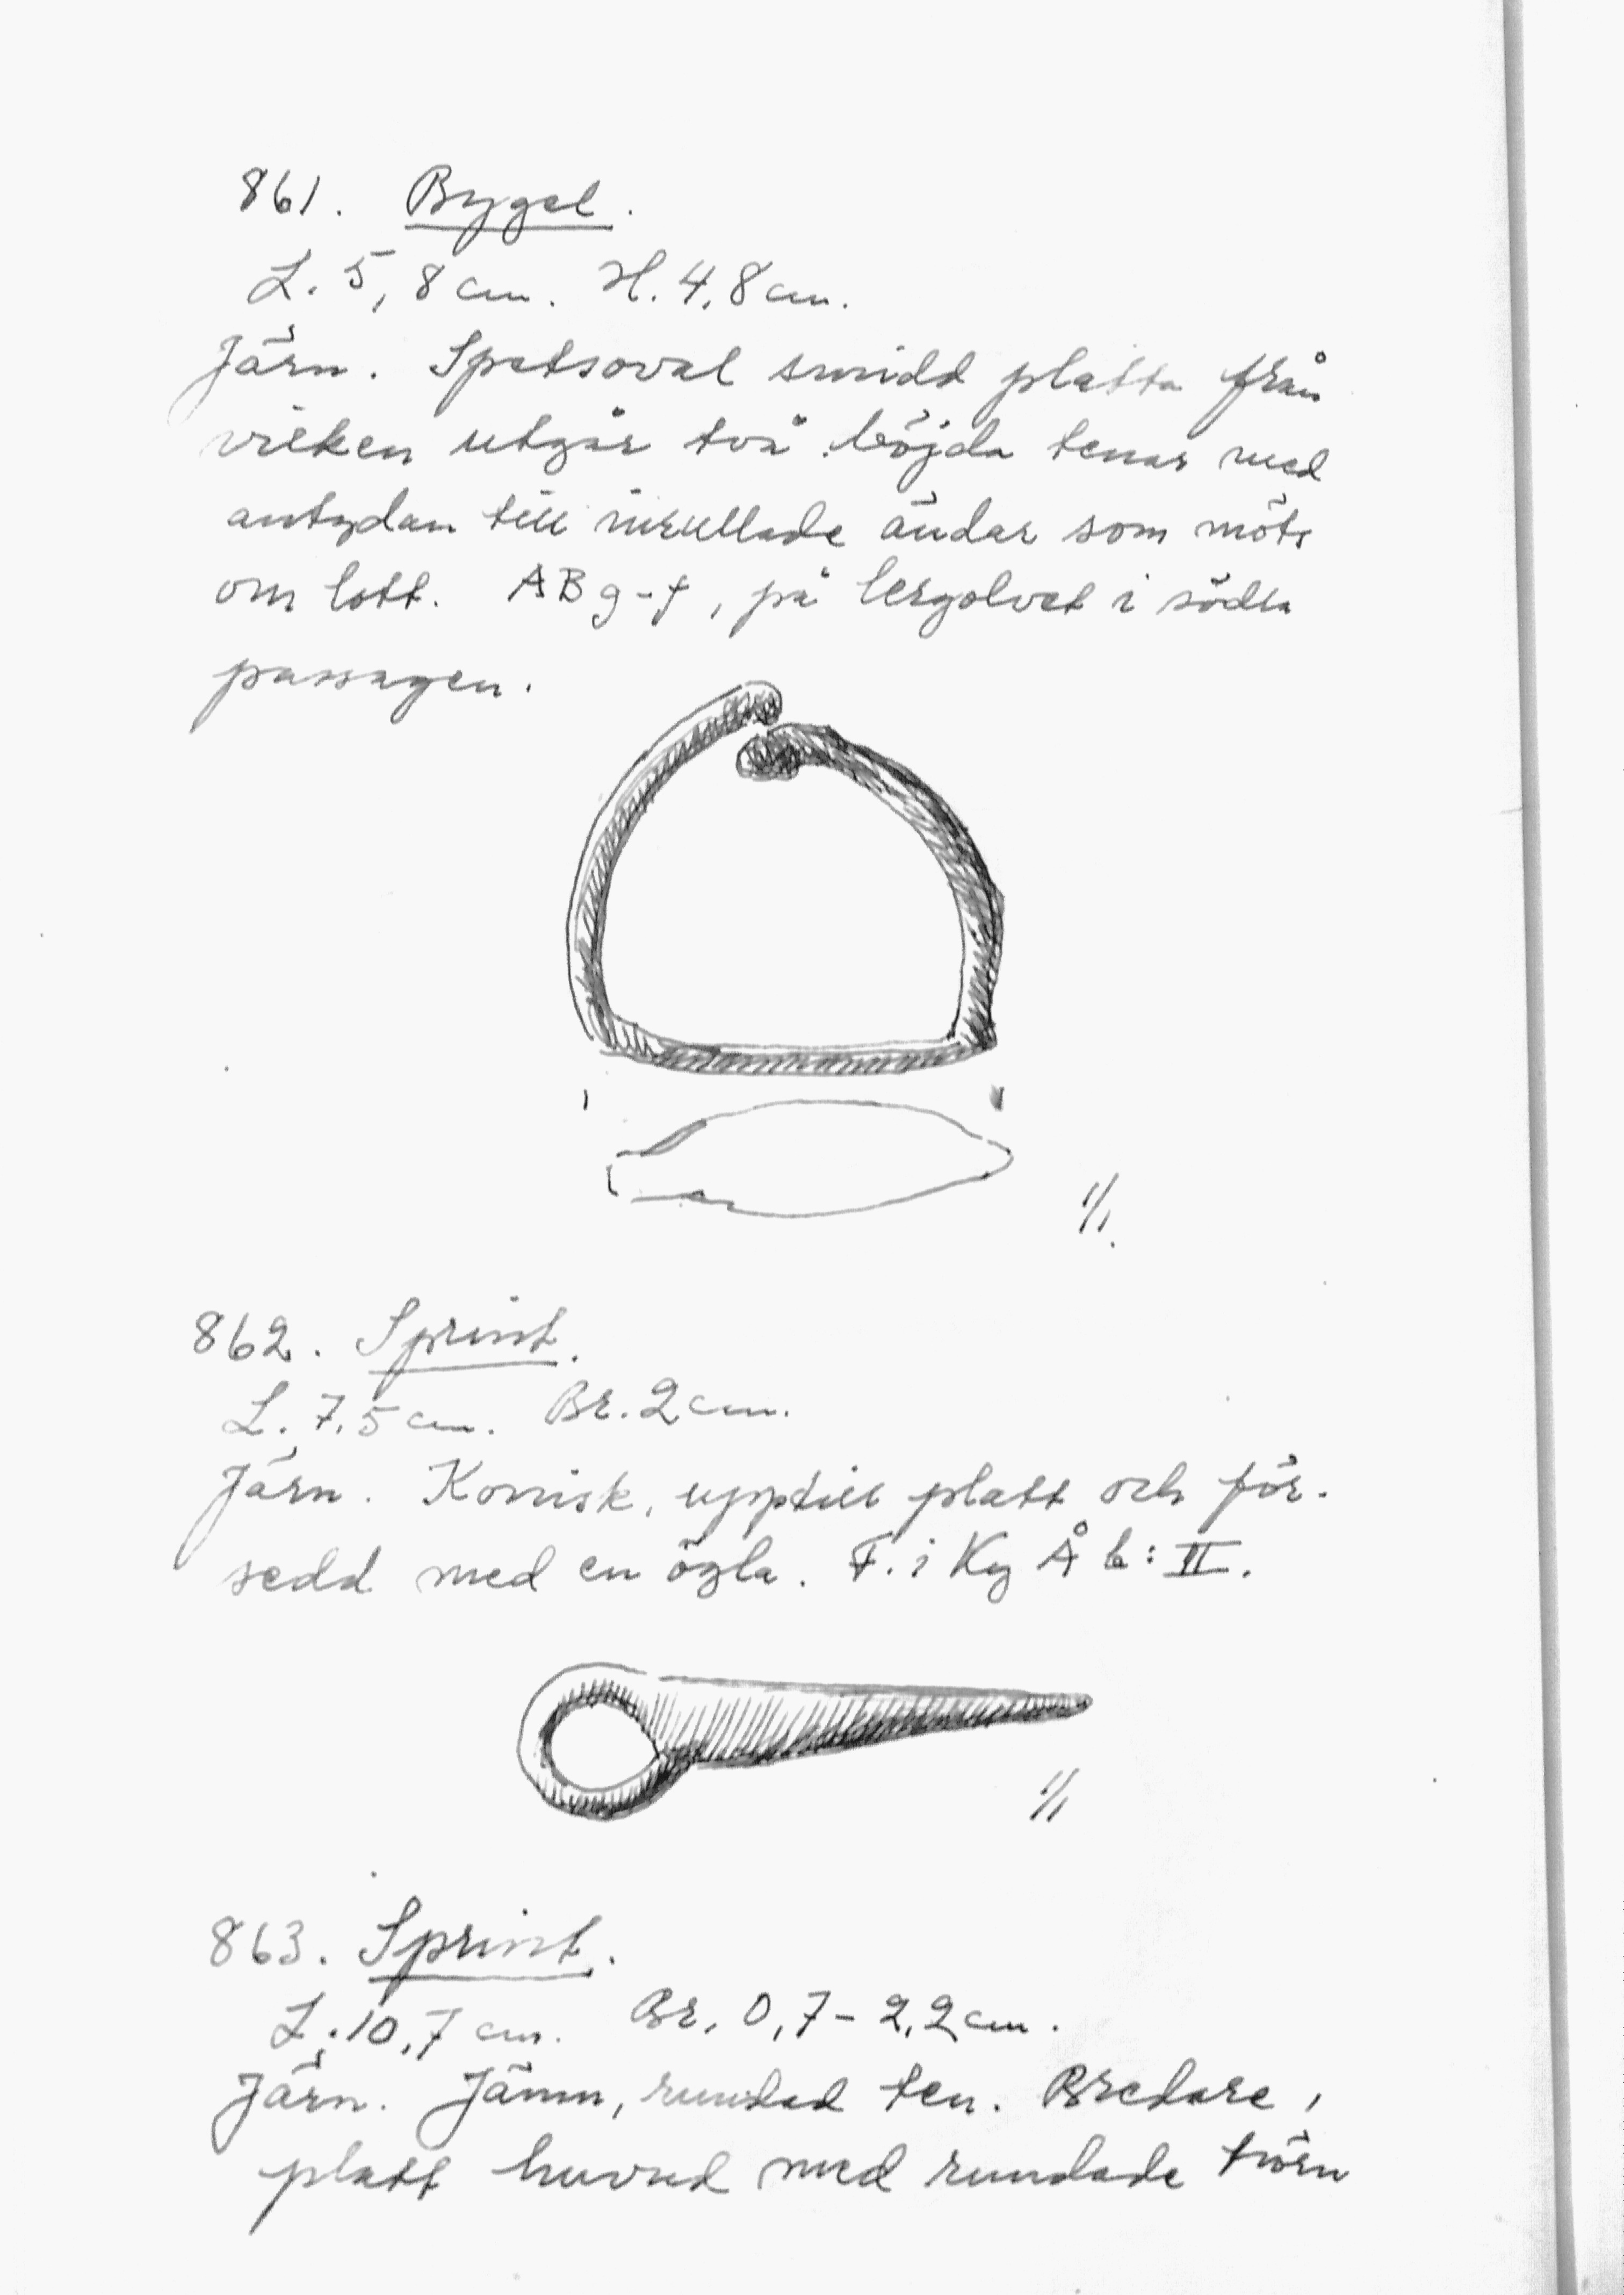 861. Bygel.
L. 5,8 cm. H. 4,8 cm.
Järn. Spetsoval smidd platta från
vilken utgår två böjda tenar med
antydan till inrullade ändar som möts
om lott. AB g-f, på lergolvet i södra
passagen.
1/1.
862. Sprint.
L. 7,5 cm. Br. 2 cm.
Järn. Konisk, upptill platt och för-
sedd med en ögla. F. i Kg Å b: II.
1/1
863. Sprint.
L. 10,7 cm. Br. 0,7 - 2,2 cm.
Järn. Jämn, rundad ten. Bredare,
platt huvud med rundade hörn